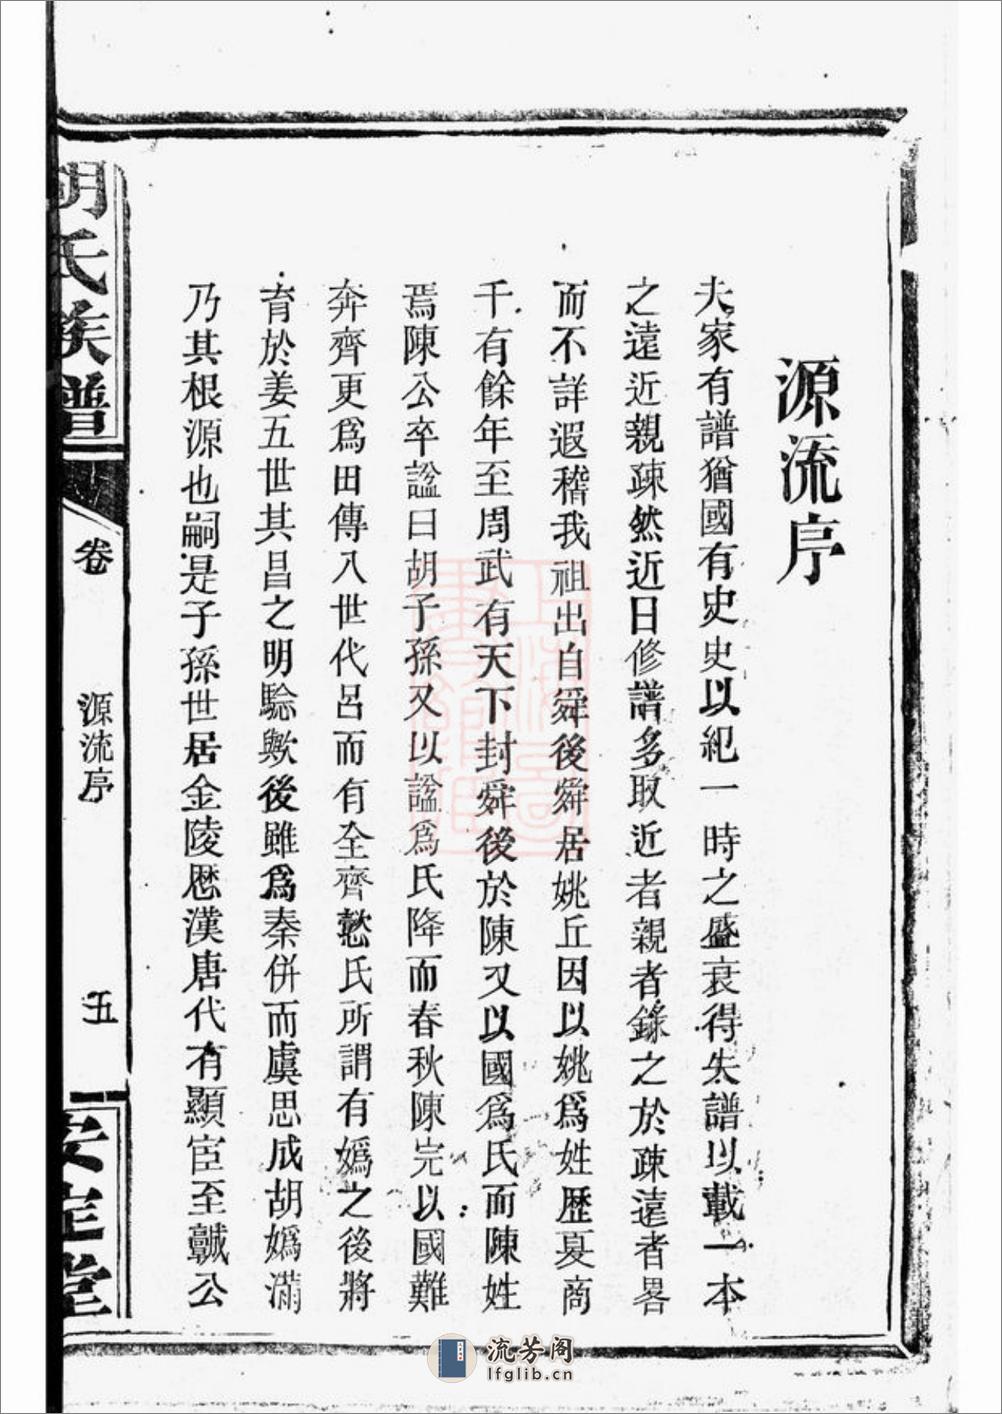 源流序
夫家有譜猶國有史史以紀一時之盛衰得失譜以載一本
之遠近親疎然近日修譜多取近者親者錄之於疎遠者畧
而不詳遐稽我祖出自舜後舜居姚丘因以姚為姓歷夏商
千有餘年至周武有天下封舜後於陳又以國為氏而陳姓
焉陳公卒諡曰胡子孫又以諡為氏降而春秋陳完以國難
奔齊更為田傳八世代呂而有全齊懿氏所謂有媯之後將
育於姜五世其昌之明驗歟後雖為秦併而虞思成胡媯滿
乃其根源也嗣是子孫世居金陵歷漢唐代有顯宦至公
胡氏族譜
卷
源流序
五
安定堂
流芳阁
lfglib.cn